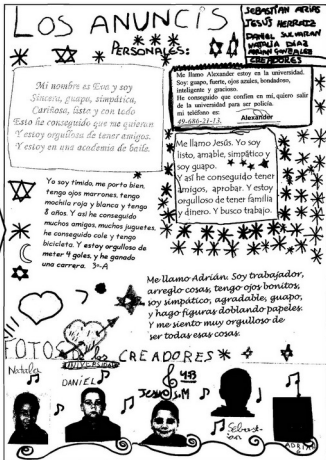 LOS ANUNCIS
PERSONALES:
SEBASTIAN ARIAS
JESÚS HERRAIZ
DANIEL
NATALIA DÍAZ
CREADORES
Mi nombre es Eva y soy
Sincera, guapa, simpática,
Cariñosa, lista y con todo
Esto he conseguido que me quieran
Y estoy orgullosa de tener amigos.
Y estoy en una academia de baile.
Me llamo Alexander estoy en la universidad.
Soy: guapo, fuerte, ojos azules, bondadoso,
inteligente y gracioso.
He conseguido que confíen en mi, quiero salir
de la universidad para ser policía.
mi teléfono es:
49-686-21-13.
Alexander
Me llamo Jesús. Yo soy
listo, amable, simpático y
soy guapo.
Y así he conseguido tener
amigos, aprobar. Y estoy
orgulloso de tener familia
y dinero. Y busco trabajo.
Yo soy tímido, me porto bien,
tengo ojos marrones, tengo
mochila roja y blanca y tengo
8 años. Y así he conseguido
muchos amigos, muchos juguetes,
he conseguido cole y tengo
bicicleta. Y estoy orgulloso de
meter 4 goles, y he ganado
una carrera. 3º-A
Me llamo Adrián. Soy trabajador,
arreglo cosas, tengo ojos bonitos,
soy simpático, agradable, guapo,
y hago figuras doblando papeles.
Y me siento muy orgulloso de
ser todas esas cosas.
FOTOS
CREADORES
Natalia
DANIEL
JESUS.M
Sebast-
ian
ADRIAN